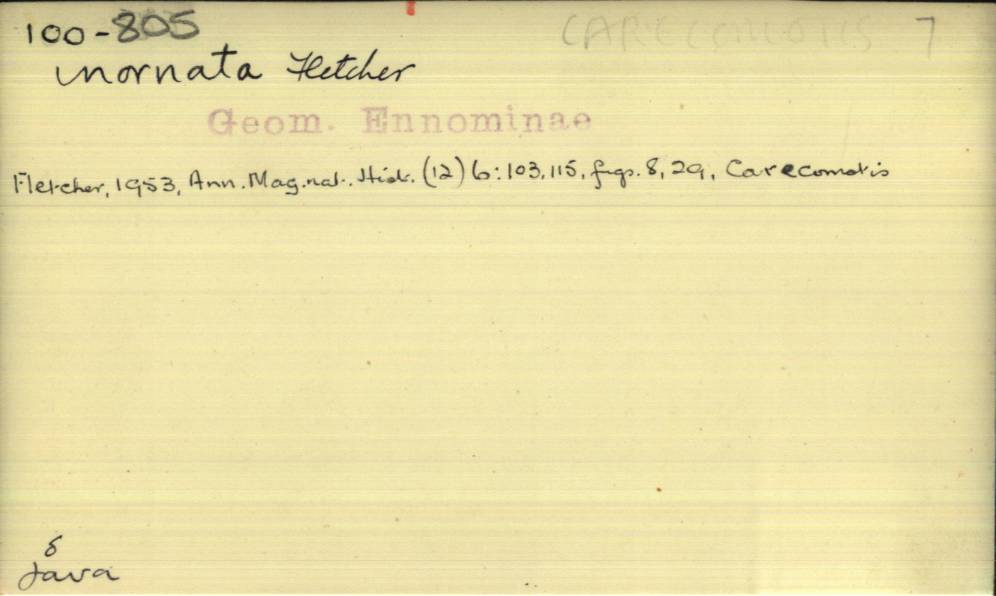 100-805 CARECOMOTIS 7
inornata Fletcher
Geom. Ennominae
Fletcher, 1953, Ann. Mag. nat. Hist. (12) 6: 103, 115, figs. 8, 29, Carecomotis
♂
Java